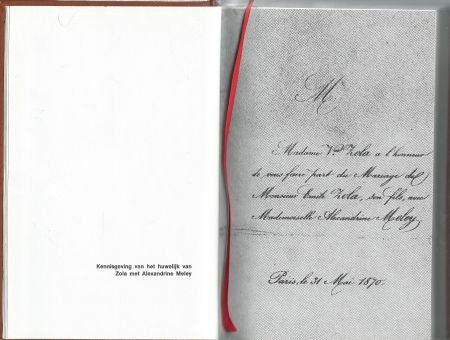 Kennisgeving van het huwelijk van
Zola met Alexandrine Meley
M
Madame Vve Zola a l'honneur
de vous faire part du Mariage de
Monsieur Emile Zola, son fils, avec
Mademoiselle Alexandrine Meley.
Paris, le 31 Mai 1870.